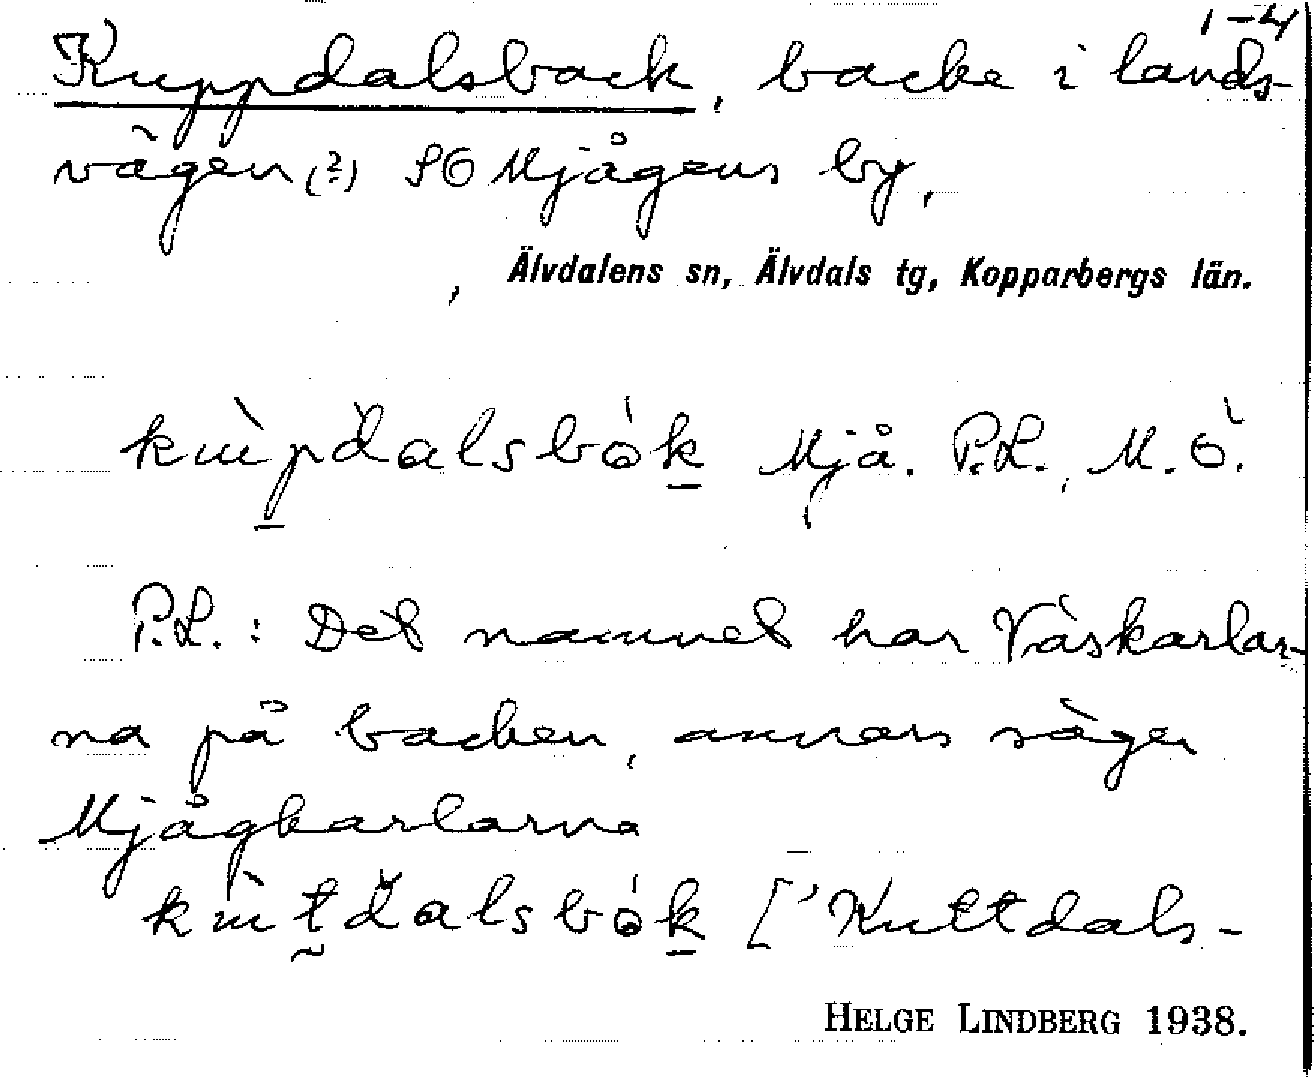 1-4
Kuppdalsback, backe i lands-
vägen (?) SO Mjågens by,
, Älvdalens sn, Älvdals tg, Kopparbergs län.
kùpdalsbók Mjå. P.L., M.Ö.
P.L.: Det namnet har Väskarlar-
na på backen, annars säger
Mjågkarlarna
kùtdalsbók ['Kuttdals-
HELGE LINDBERG 1938.